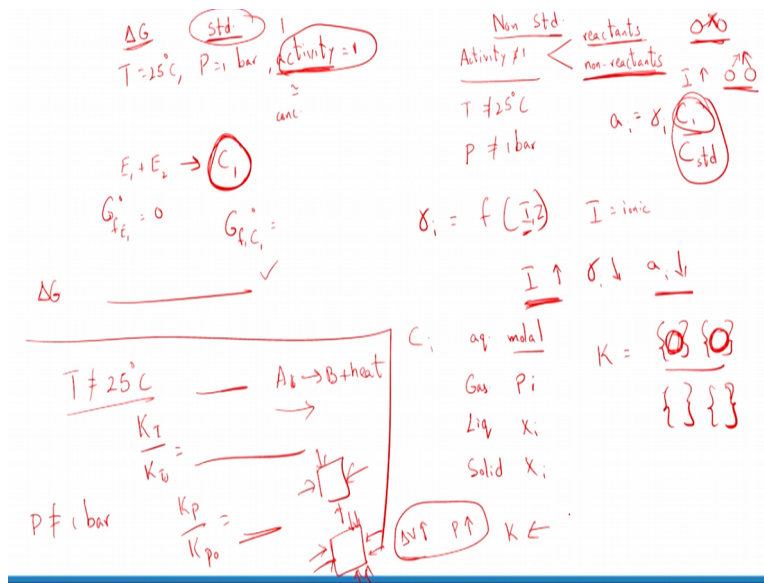 ΔG std.
T=25°C, P=1 bar, activity = 1
≅
conc.
E₁ + E₂ → C₁
G°f,E₁ = 0 G°f,C₁ =
ΔG ✓
T ≠ 25°C
A → B + heat
→
K_T / K_T₀ =
P ≠ 1 bar
K_P / K_P₀ =
Non std.
Activity ≠ 1 < reactants
non-reactants
I ↑
T ≠ 25°C
P ≠ 1 bar
aᵢ = γᵢ Cᵢ / Cstd
γᵢ = f (I, Z) I = ionic
I ↑ γᵢ ↓ aᵢ ↓
Cᵢ aq. molal
Gas Pᵢ
Liq Xᵢ
Solid Xᵢ
K = { } { } / { } { }
ΔV↑ P↑ K ←